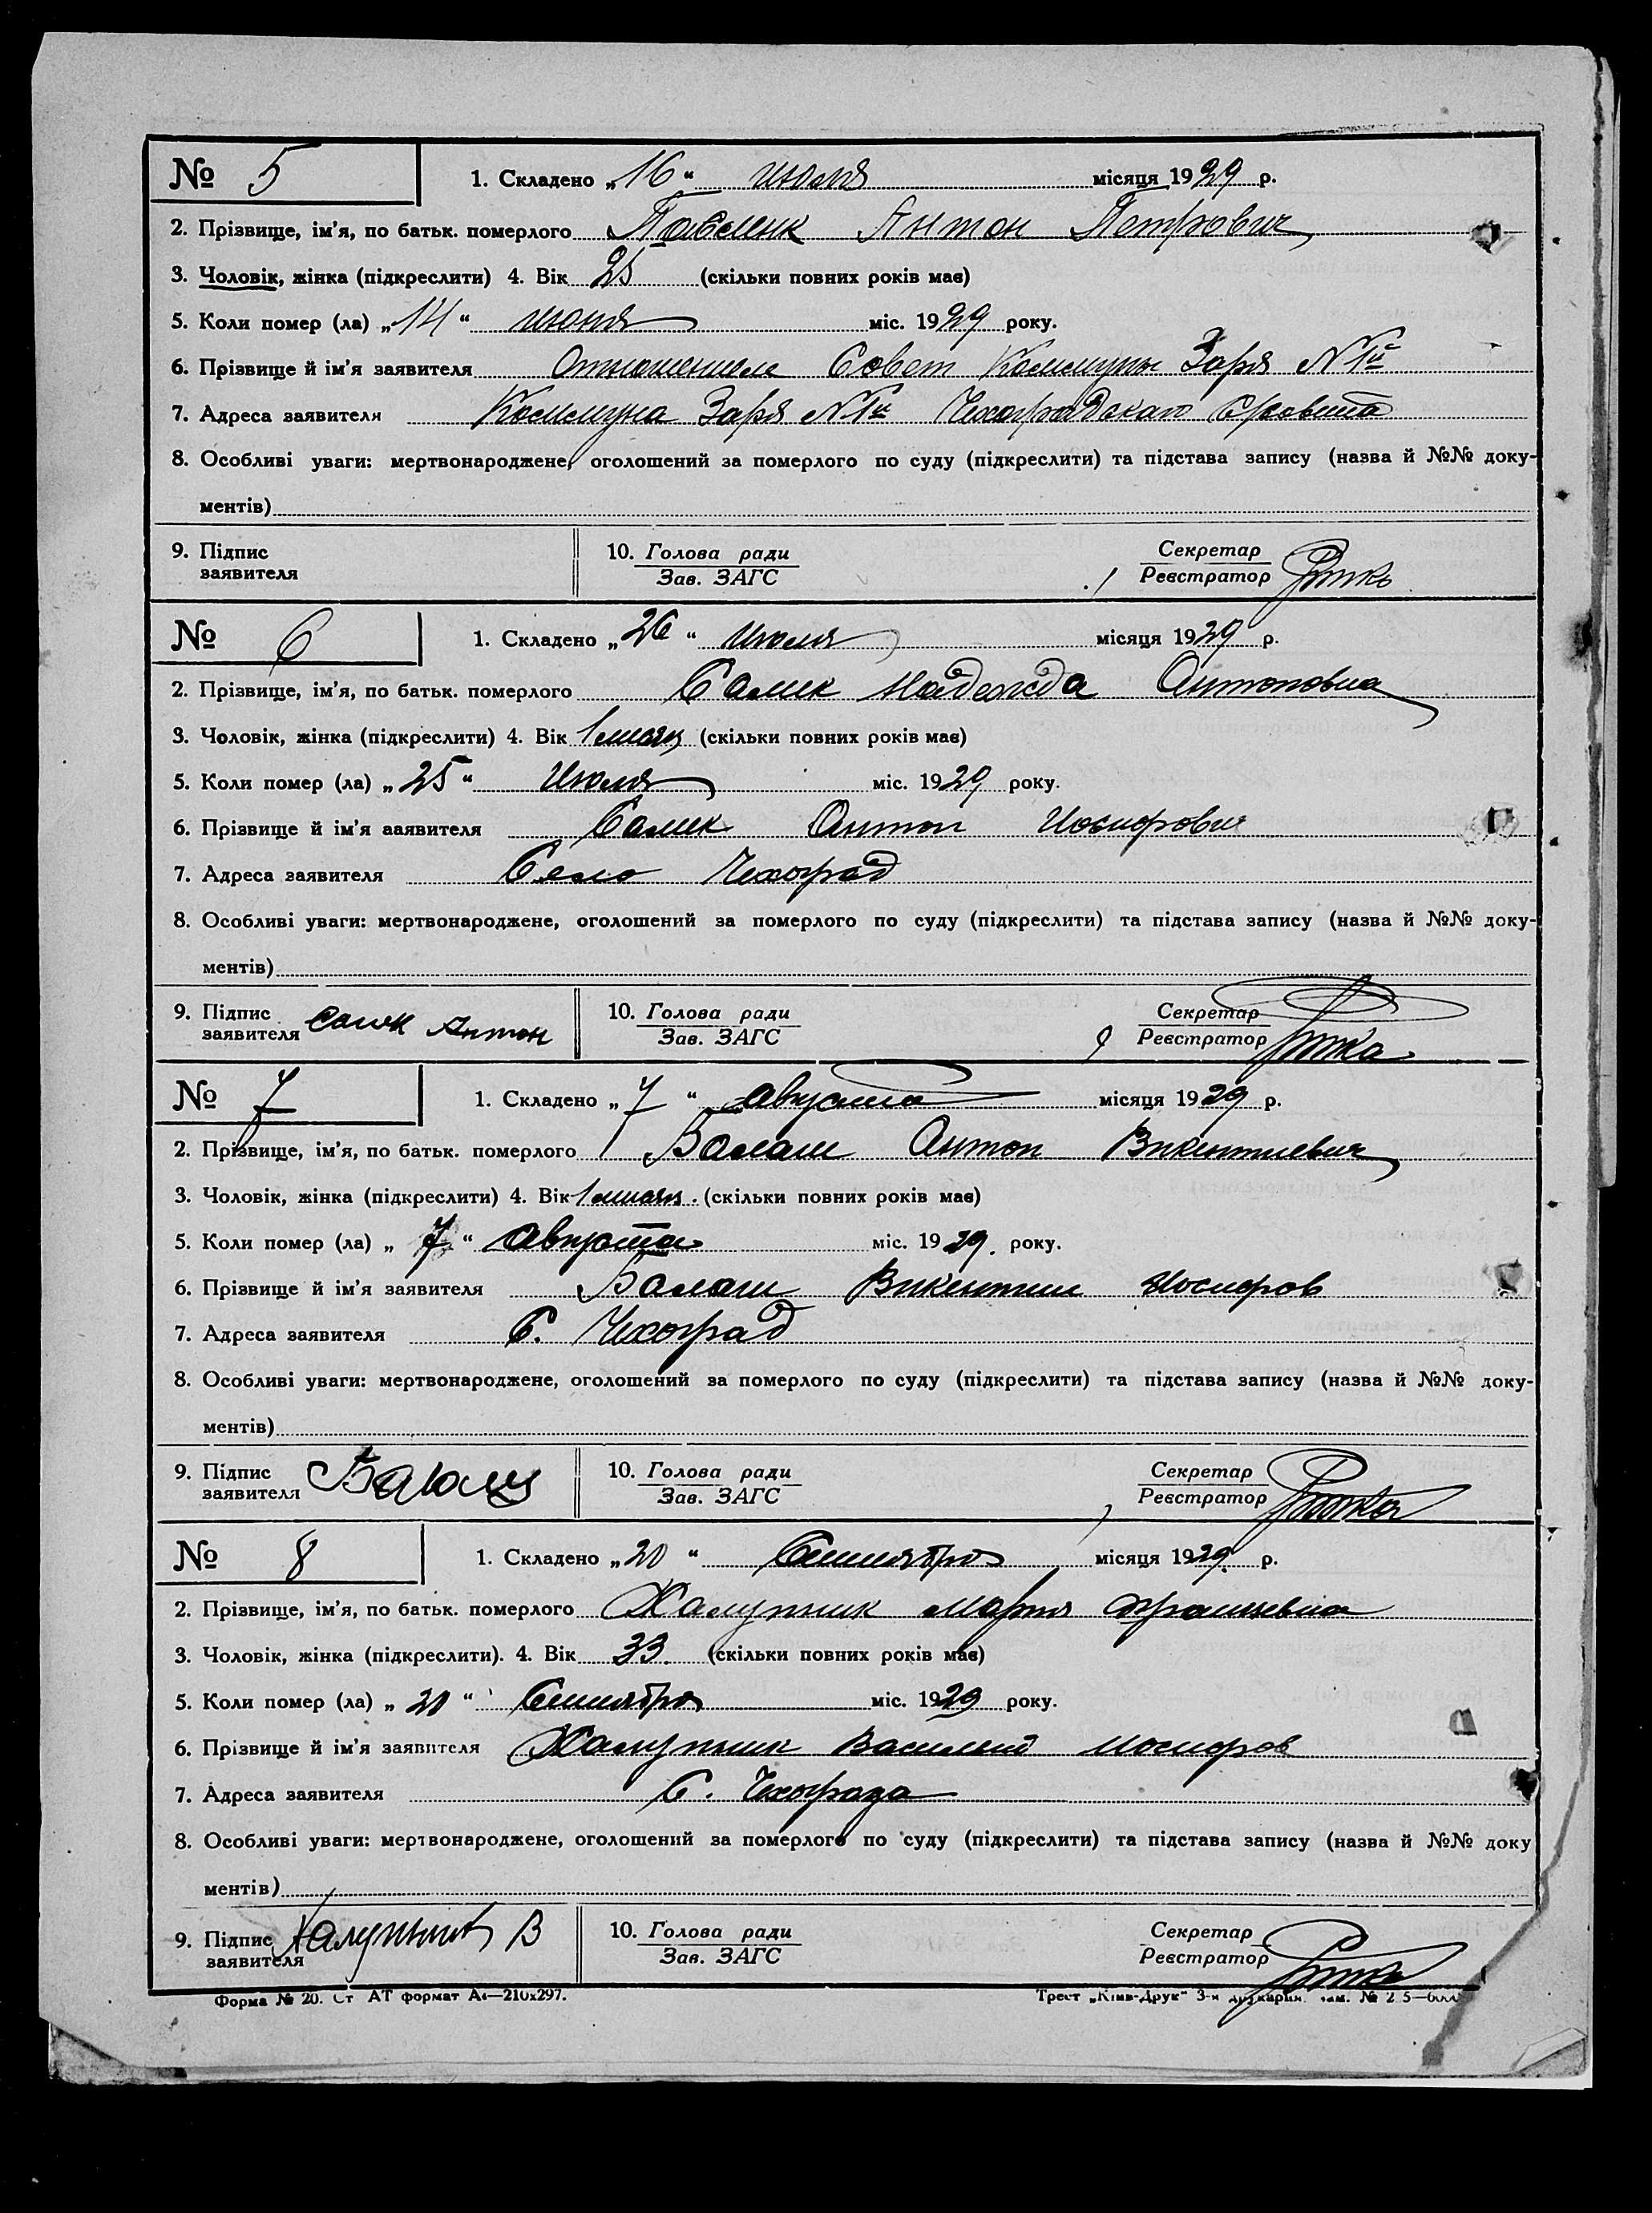 № 5 1. Складено „16“ июля місяця 1929 р.
2. Прізвище, ім'я, по батьк. померлого Павленк Антон Петрович
3. Чоловік, жінка (підкреслити) 4. Вік 25 (скільки повних років має)
5. Коли помер (ла) „14“ июня міс. 1929 року.
6. Прізвище й ім'я заявителя Отношением Совет Коммуны Заря №1й
7. Адреса заявителя Коммуна Заря №1й Чехоградскаго
8. Особливі уваги: мертвонароджене, оголошений за померлого по суду (підкреслити) та підстава запису (назва й №№ доку-
ментів)
9. Підпис заявителя 10. Голова ради Секретар
Зав. ЗАГС Реєстратор
№ 6 1. Складено „26“ Июля місяця 1929 р.
2. Прізвище, ім'я, по батьк. померлого Самек Надежда Антоновна
3. Чоловік, жінка (підкреслити) 4. Вік 1 месяц (скільки повних років має)
5. Коли помер (ла) „25“ Июля міс. 1929 року.
6. Прізвище й ім'я ааявителя Самек Антон Иосифович
7. Адреса заявителя Село Чехоград
8. Особливі уваги: мертвонароджене, оголошений за померлого по суду (підкреслити) та підстава запису (назва й №№ доку-
ментів)
9. Підпис заявителя Самек Антон 10. Голова ради Секретар
Зав. ЗАГС Реєстратор
№ 7 1. Складено „7“ Августа місяця 1929 р.
2. Прізвище, ім'я, по батьк. померлого Балаш Антон Викентиевич
3. Чоловік, жінка (підкреслити) 4. Вік 1 месяц. (скільки повних років має)
5. Коли помер (ла) „7“ Августа міс. 1929. року.
6. Прізвище й ім'я заявителя Балаш Викентии Иосифов
7. Адреса заявителя С. Чехоград
8. Особливі уваги: мертвонароджене, оголошений за померлого по суду (підкреслити) та підстава запису (назва й №№ доку-
ментів)
9. Підпис заявителя Балаш 10. Голова ради Секретар
Зав. ЗАГС Реєстратор
№ 8 1. Складено „20“ Сентября місяця 1929. р.
2. Прізвище, ім'я, по батьк. померлого Халупник Мария Францевна
3. Чоловік, жінка (підкреслити). 4. Вік 33. (скільки повних років має)
5. Коли помер (ла) „20“ Сентября міс. 1929 року.
6. Прізвище й ім'я заявителя Халупник Василий Иосифов
7. Адреса заявителя С. Чехограда
8. Особливі уваги: мертвонароджене, оголошений за померлого по суду (підкреслити) та підстава запису (назва й №№ доку
ментів)
9. Підпис заявителя Халупник В 10. Голова ради Секретар
Зав. ЗАГС Реєстратор
Форма № 20. Ст АТ формат А4—210x297. Трест „Київ-Друк“ 3-я друкарня.